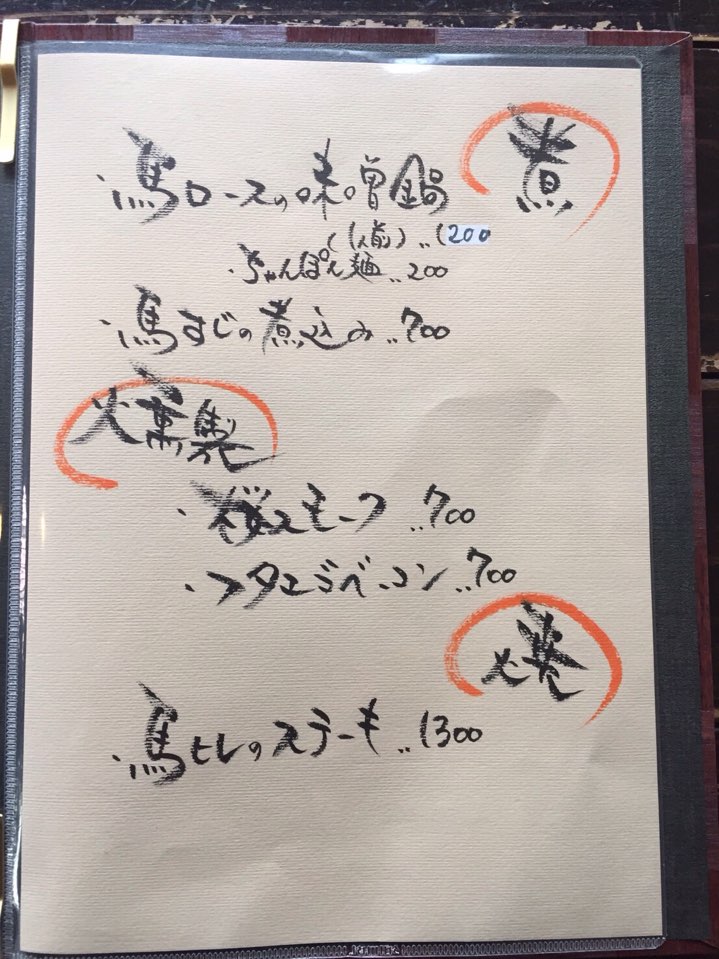 煮
・馬ロースの味噌鍋
(1人前)‥1200
・ちゃんぽん麺‥200
・馬すじの煮込み‥700
燻製
・桜スモーク‥700
・フタエゴベーコン‥700
焼
・馬ヒレのステーキ‥1300